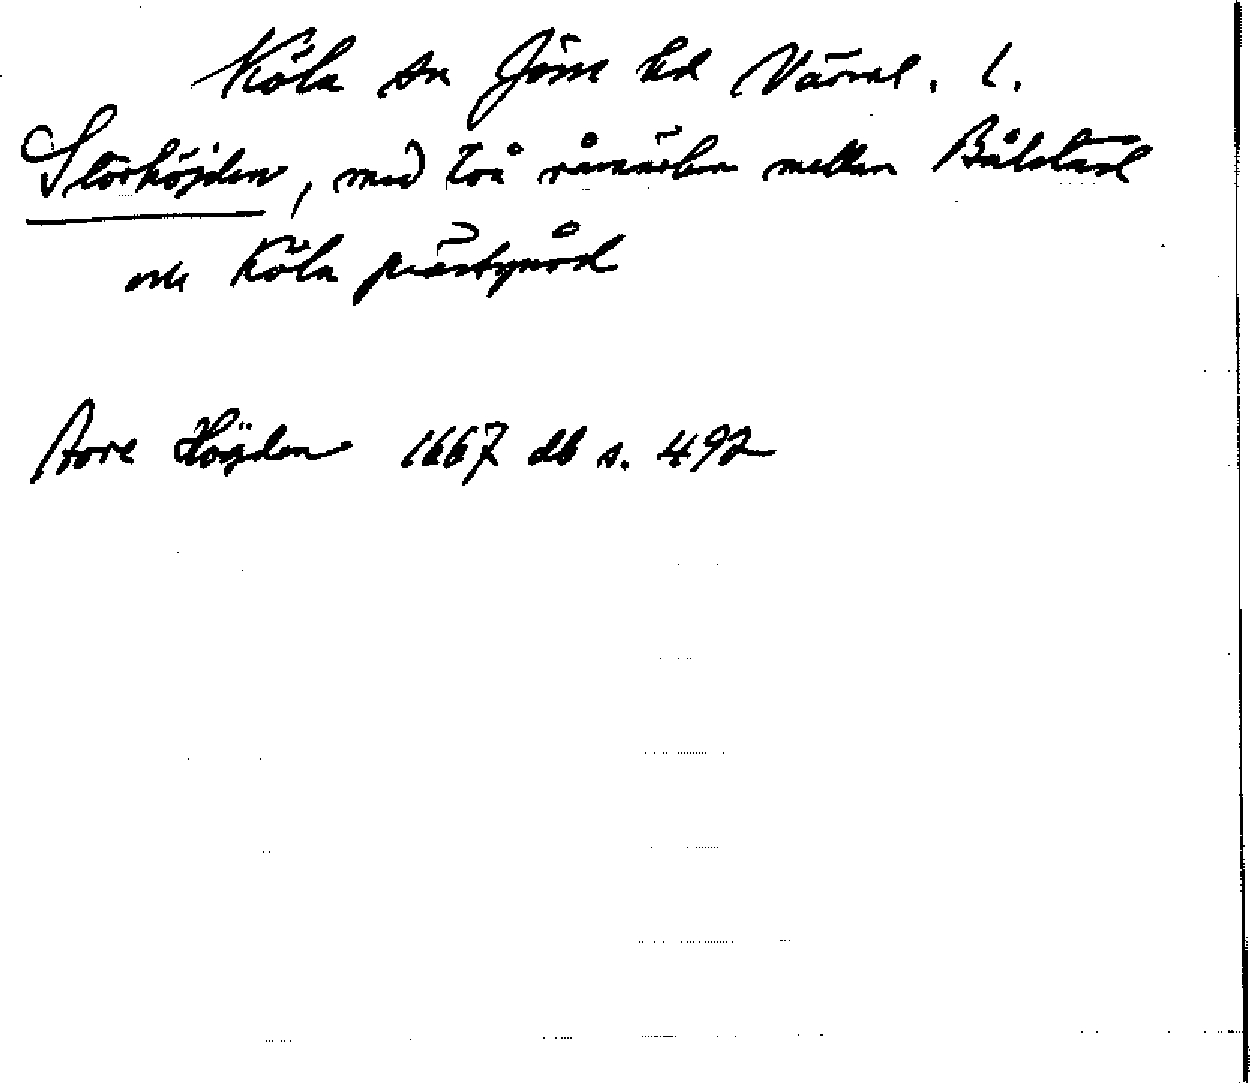 Köla sn Jösse hd Värml. l.
Storhöjden, med två råmärken mellan Bålstad
och Köla prästgård
store Höyden 1667 db s. 492